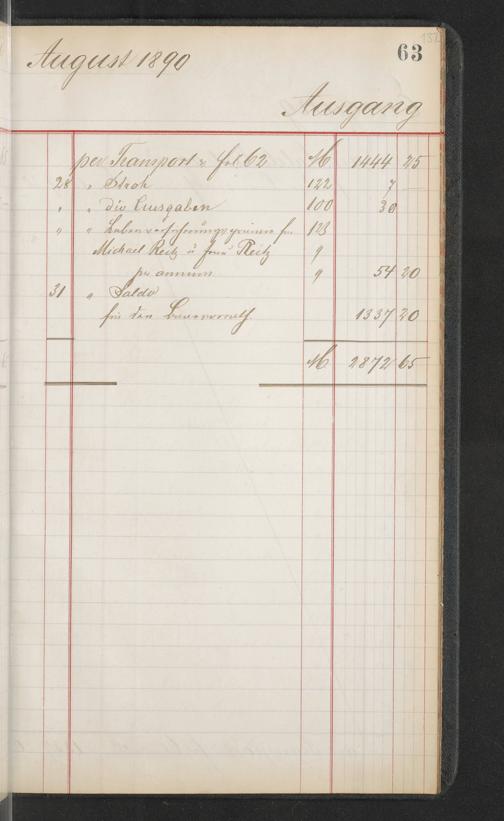 63
August 1890
Ausgang
per Transport v. fol. 62 M 1444 25
28 " Stroh 122 7 —
" " div Ausgaben 100 30
" " Lebensversicherungsprämie für 123
Michael Reitz u Reitz 9
pr. annum 9 54 20
31 " Saldo
für den Baarvorrath 1337 20
M 2872 65